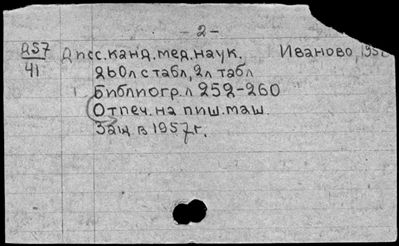 - 2 -
Д57 Дисс. канд. мед. наук. Иваново, 195
41 260л с табл, 2л табл
Библиогр. л 252-260
Отпеч. на пиш. маш.
Защ в 1957г.